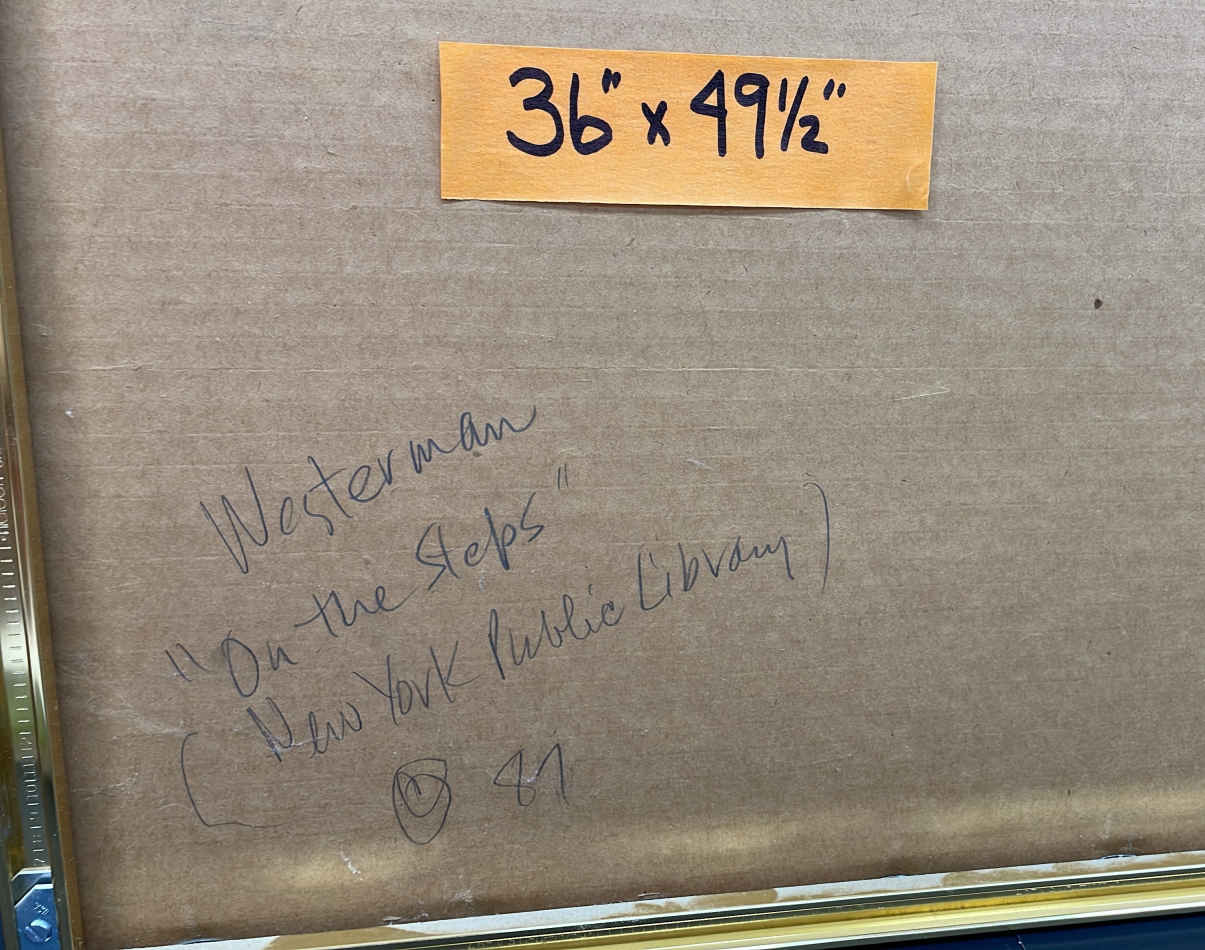 36" x 49½"
Westerman
"On the Steps"
(New York Public Library)
© 87